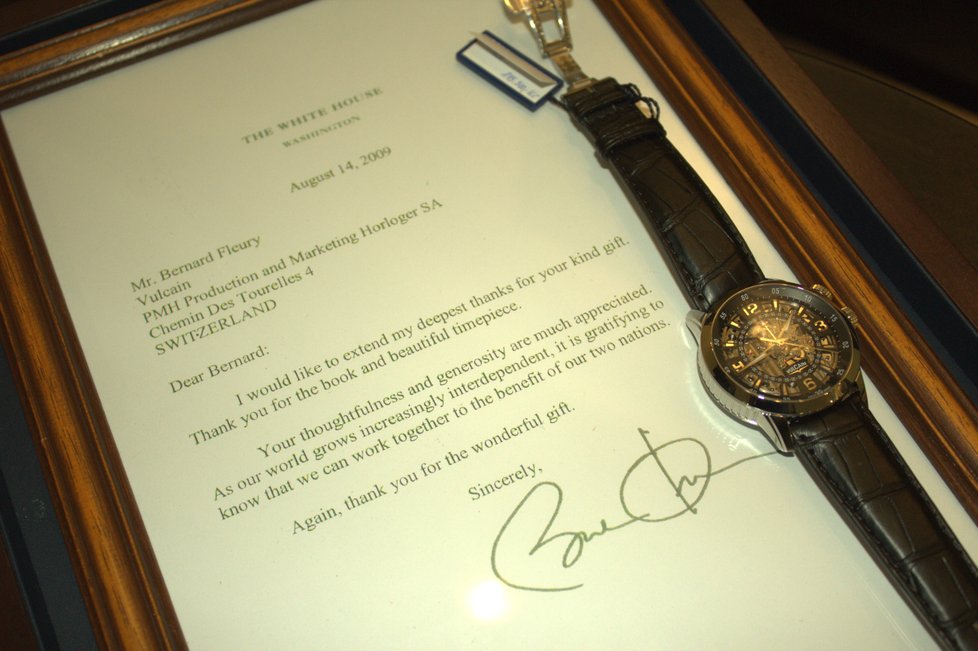 THE WHITE HOUSE
WASHINGTON
August 14, 2009
Mr. Bernard Fleury
Vulcain
PMH Production and Marketing Horloger SA
Chemin Des Tourelles 4
SWITZERLAND
Dear Bernard:
I would like to extend my deepest thanks for your kind gift.
Thank you for the book and beautiful timepiece.
Your thoughtfulness and generosity are much appreciated.
As our world grows increasingly interdependent, it is gratifying to
know that we can work together to the benefit of our two nations.
Again, thank you for the wonderful gift.
Sincerely,
VULCAIN